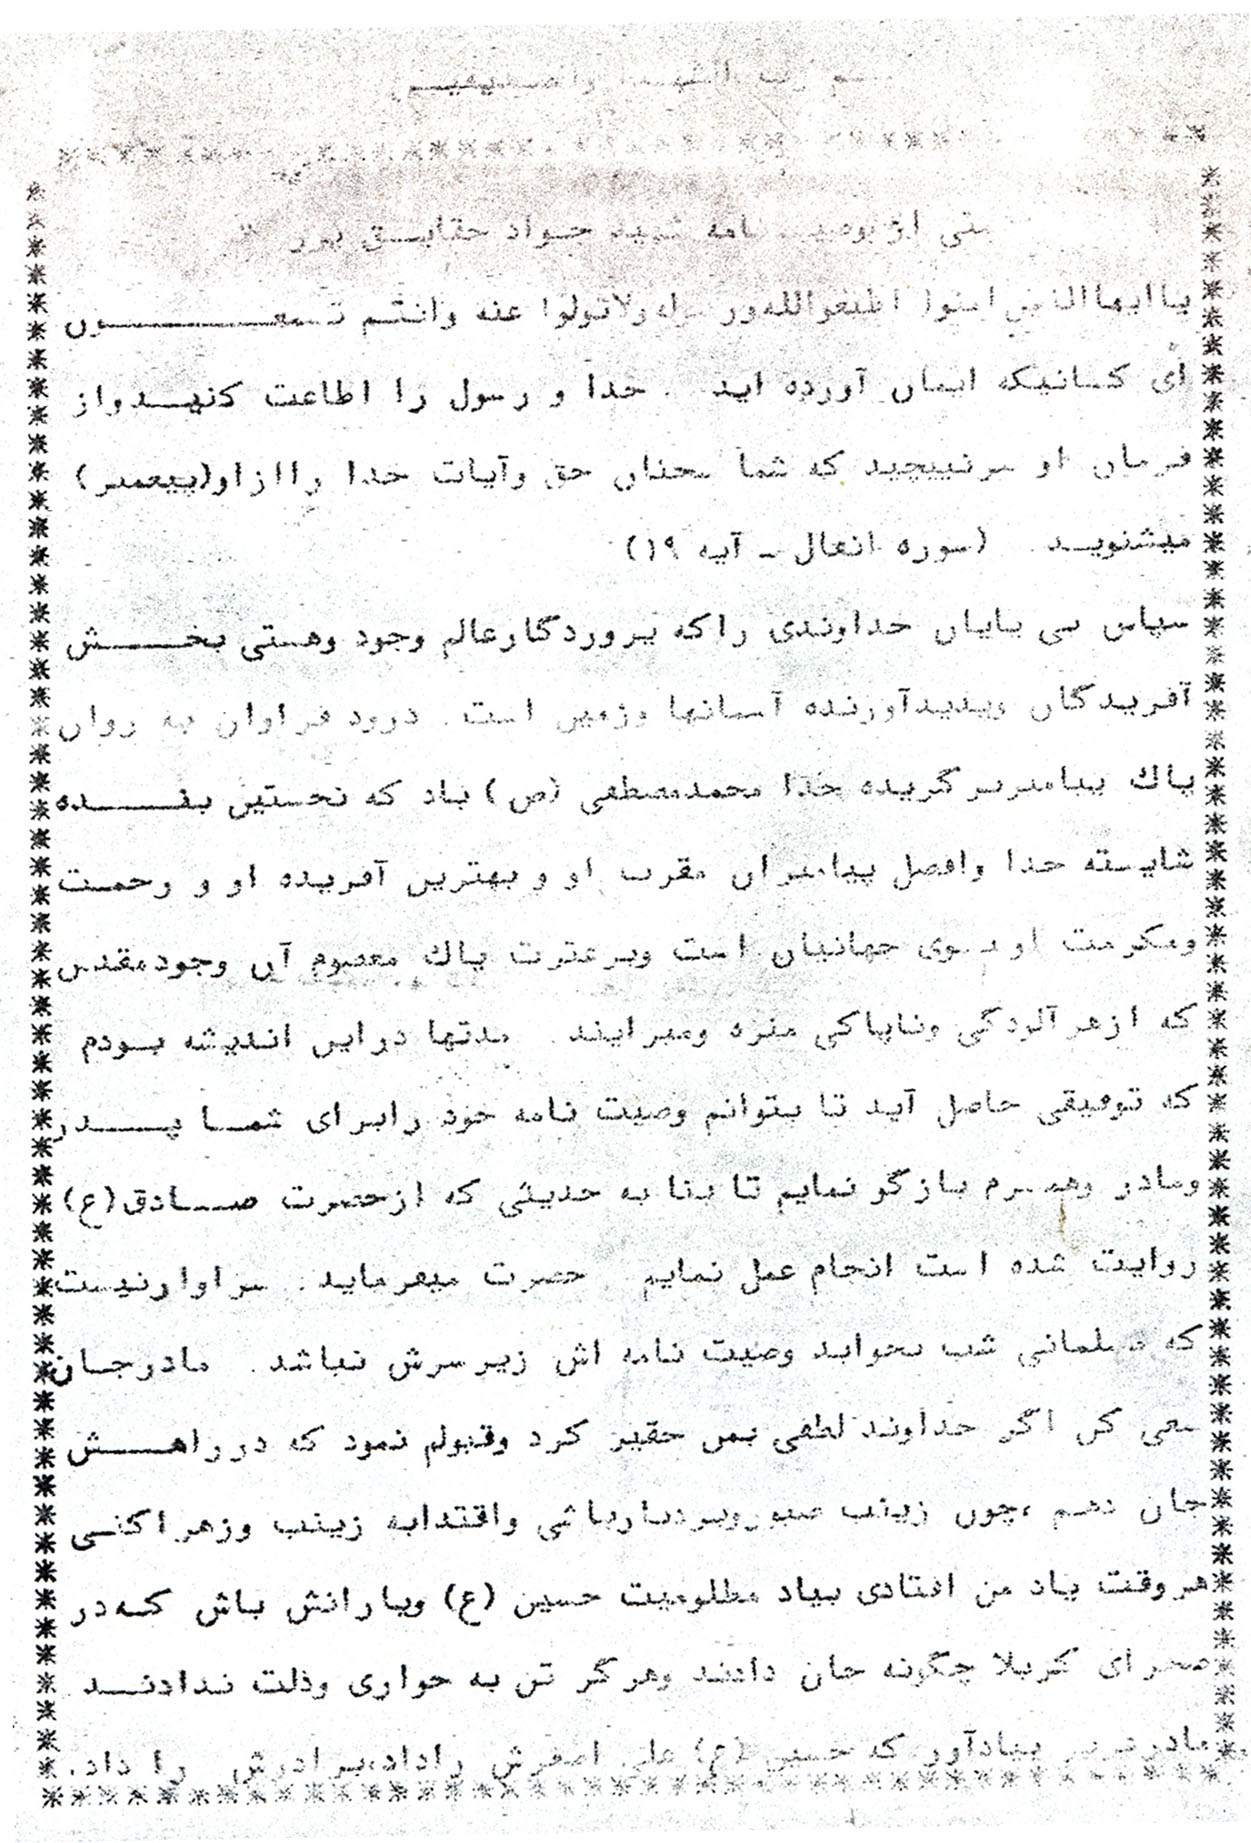 از وصیت نامه شهید جواد حقایق پور
یاایهاالذین امنوا اطیعوالله ورسوله ولاتولوا عنه وانتم تسمعون
ای کسانیکه ایمان آورده اید . خدا و رسول را اطاعت کنیدواز
فرمان او سرنپیچید که شما سخنان حق وآیات خدا راازاو(پیغمبر)
میشنوید . (سوره انفال - آیه ۱۹)
سپاس بی پایان خداوندی راکه پروردگارعالم وجود وهستی بخش
آفریدگان وپدیدآورنده آسمانها وزمین است . درود فراوان به روان
پاك پیامبربرگزیده خدا محمدمصطفی (ص) باد که نخستین بنده
شایسته خدا وافضل پیامبران مقرب او و بهترین آفریده او و رحمت
ومکرمت او بسوی جهانیان است وبرعترت پاك معصوم آن وجودمقدس
که ازهرآلودگی وناپاکی منزه ومبرایند . مدتها دراین اندیشه بودم
که توفیقی حاصل آید تا بتوانم وصیت نامه خود رابرای شما پدر
ومادر وهمسرم بازگو نمایم تا بنا به حدیثی که ازحضرت صادق(ع)
روایت شده است انجام عمل نمایم حضرت میفرماید . سزاوارنیست
که مسلمانی شب بخوابد وصیت نامه اش زیرسرش نباشد . مادرجان
سعی کن اگر خداوند لطفی بمن حقیر کرد وقبولم نمود که درراهش
جان دهم ،چون زینب صبوروبردبارباشی واقتدابه زینب وزهراکنی
هروقت یاد من افتادی بیاد مظلومیت حسین (ع) ویارانش باش که در
صحرای کربلا چگونه جان دادند وهرگز تن به خواری وذلت ندادند
مادر بیادآور که حسین (ع) علی اصغرش راداد،برادرش را داد.